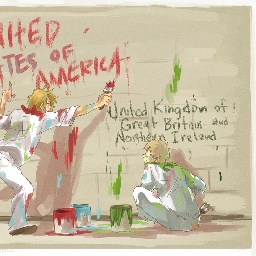 UNITED
STATES OF
AMERICA
United Kingdom of
Great Britain and
Northern Ireland